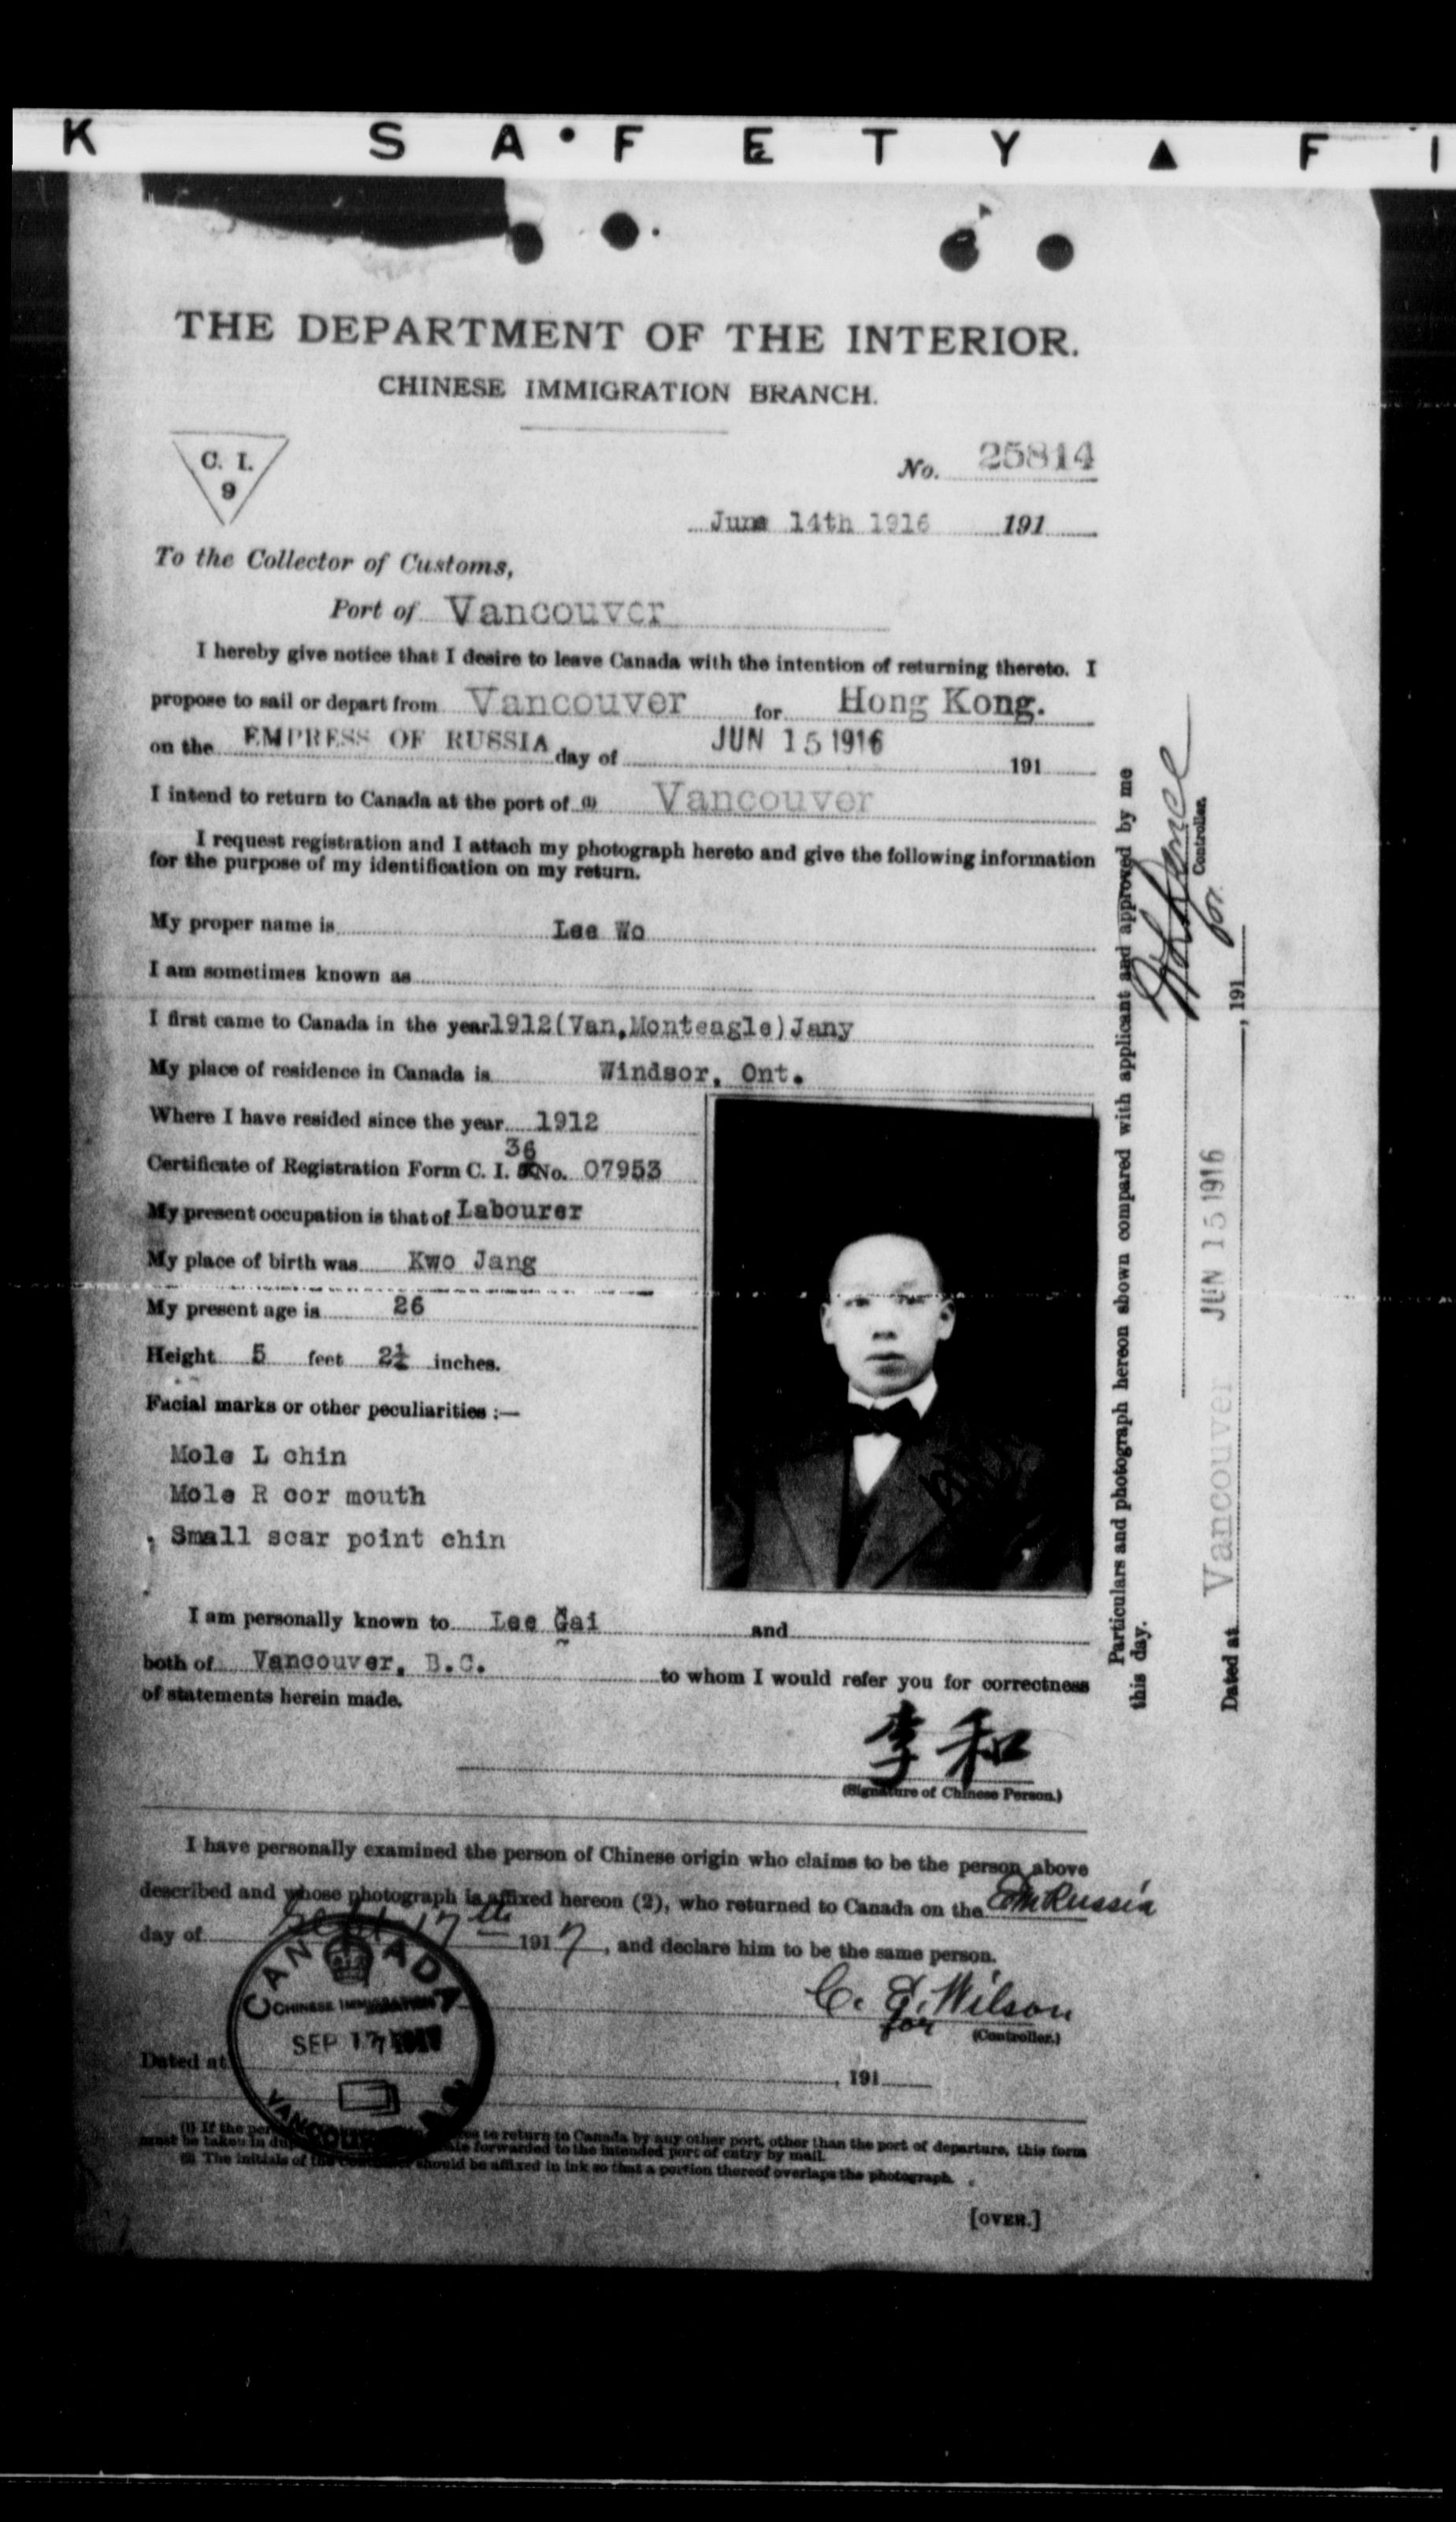 K SA•FETY▲FI
THE DEPARTMENT OF THE INTERIOR.
CHINESE IMMIGRATION BRANCH.
C. I.
9
No. 25814
June 14th 1916 191
To the Collector of Customs,
Port of Vancouver
I hereby give notice that I desire to leave Canada with the intention of returning thereto. I
propose to sail or depart from Vancouver for Hong Kong.
on the EMPRESS OF RUSSIA day of JUN 15 1916 191
I intend to return to Canada at the port of (1) Vancouver
I request registration and I attach my photograph hereto and give the following information
for the purpose of my identification on my return.
My proper name is Lee Wo
I am sometimes known as
I first came to Canada in the year 1912(Van.Monteagle)Jany
My place of residence in Canada is Windsor, Ont.
Where I have resided since the year 1912
36
Certificate of Registration Form C. I. No. 07953
My present occupation is that of Labourer
My place of birth was Kwo Jang
My present age is 26
Height 5 feet 2½ inches.
Facial marks or other peculiarities :—
Mole L chin
Mole R cor mouth
Small scar point chin
I am personally known to Lee Gai and
both of Vancouver, B.C. to whom I would refer you for correctness
of statements herein made.
李和
(Signature of Chinese Person.)
I have personally examined the person of Chinese origin who claims to be the person above
described and whose photograph is affixed hereon (2), who returned to Canada on the Em Russia
day of Sept 17th 1917, and declare him to be the same person.
C. E. Wilson
for (Controller.)
CANADA
CHINESE IMMIGRATION
SEP 17 1917
VANCOUVER
Dated at , 191
(1) If the to return to Canada by any other port, other than the port of departure, this form
must be taken in forwarded to the intended port of entry by mail.
(2) The initials of the should be affixed in ink so that a portion thereof overlaps the photograph.
[OVER.]
Particulars and photograph hereon shown compared with applicant and approved by me
this day.
for Controller.
Dated at Vancouver JUN 15 1916 , 191